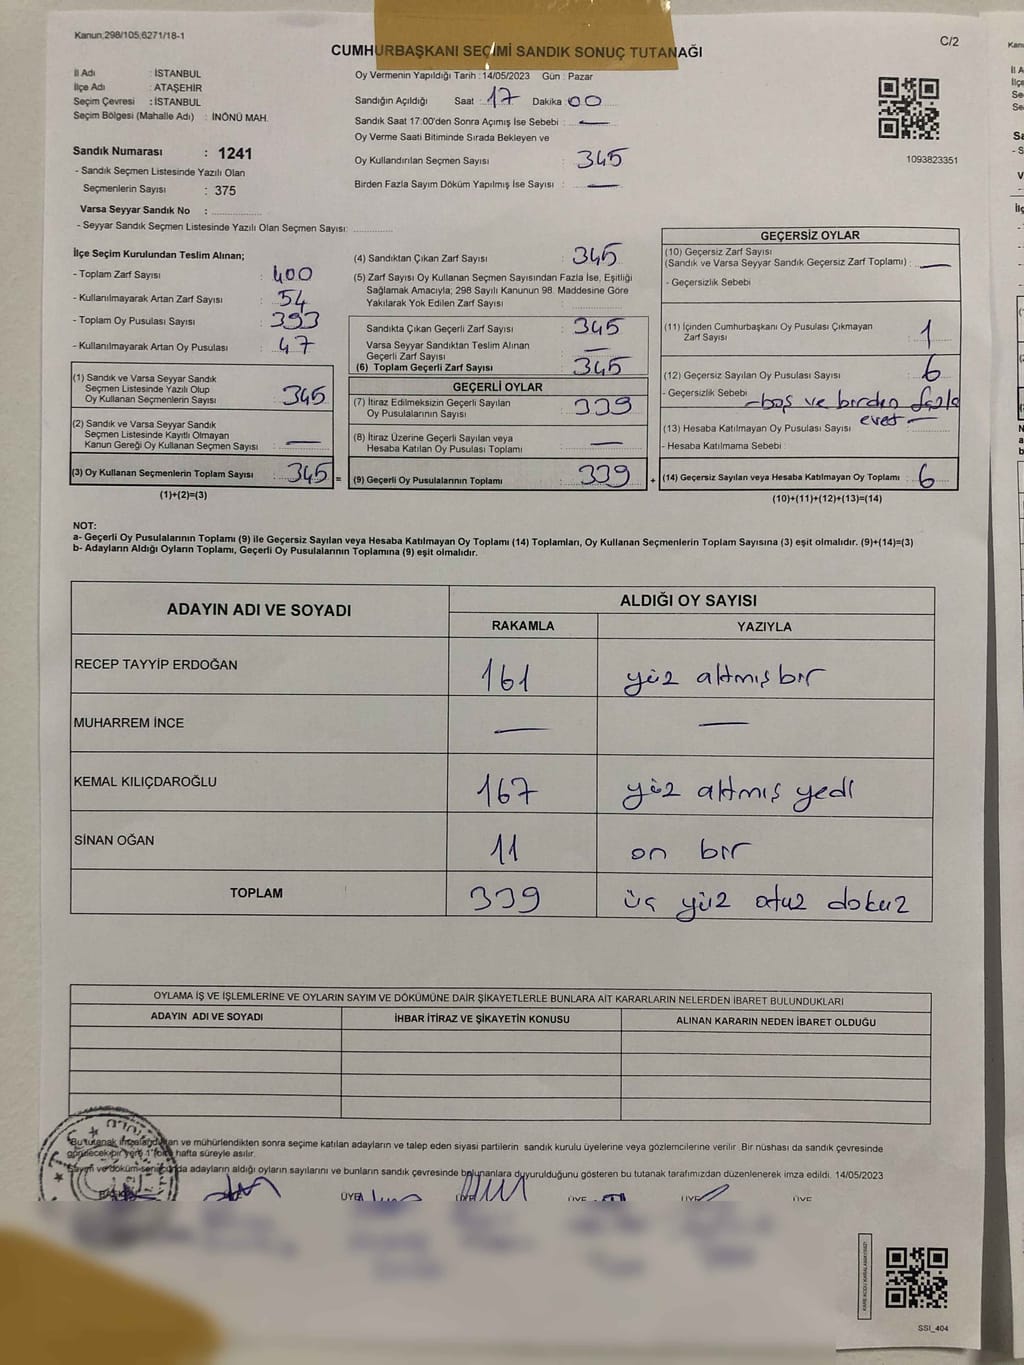 Kanun,298/105,6271/18-1
C/2
CUMHURBAŞKANI SEÇİMİ SANDIK SONUÇ TUTANAĞI
İl Adı : İSTANBUL
İlçe Adı : ATAŞEHİR
Seçim Çevresi : İSTANBUL
Seçim Bölgesi (Mahalle Adı) : İNÖNÜ MAH.
Sandık Numarası : 1241
- Sandık Seçmen Listesinde Yazılı Olan
Seçmenlerin Sayısı : 375
Varsa Seyyar Sandık No :
- Seyyar Sandık Seçmen Listesinde Yazılı Olan Seçmen Sayısı:
Oy Vermenin Yapıldığı Tarih : 14/05/2023 Gün : Pazar
Sandığın Açıldığı Saat : 17 Dakika : 00
Sandık Saat 17:00'den Sonra Açımış İse Sebebi : —
Oy Verme Saati Bitiminde Sırada Bekleyen ve
Oy Kullandırılan Seçmen Sayısı : 345
Birden Fazla Sayım Döküm Yapılmış İse Sayısı : —
1093823351
İlçe Seçim Kurulundan Teslim Alınan;
- Toplam Zarf Sayısı : 400
- Kullanılmayarak Artan Zarf Sayısı : 54
- Toplam Oy Pusulası Sayısı : 393
- Kullanılmayarak Artan Oy Pusulası : 47
(1) Sandık ve Varsa Seyyar Sandık
Seçmen Listesinde Yazılı Olup
Oy Kullanan Seçmenlerin Sayısı : 345
(2) Sandık ve Varsa Seyyar Sandık
Seçmen Listesinde Kayıtlı Olmayan
Kanun Gereği Oy Kullanan Seçmen Sayısı : —
(3) Oy Kullanan Seçmenlerin Toplam Sayısı : 345 =
(1)+(2)=(3)
(4) Sandıktan Çıkan Zarf Sayısı : 345
(5) Zarf Sayısı Oy Kullanan Seçmen Sayısından Fazla İse, Eşitliği
Sağlamak Amacıyla; 298 Sayılı Kanunun 98. Maddesine Göre
Yakılarak Yok Edilen Zarf Sayısı :
Sandıkta Çıkan Geçerli Zarf Sayısı : 345
Varsa Seyyar Sandıktan Teslim Alınan
Geçerli Zarf Sayısı : —
(6) Toplam Geçerli Zarf Sayısı : 345
GEÇERLİ OYLAR
(7) İtiraz Edilmeksizin Geçerli Sayılan
Oy Pusulalarının Sayısı : 339
(8) İtiraz Üzerine Geçerli Sayılan veya
Hesaba Katılan Oy Pusulası Toplamı : —
(9) Geçerli Oy Pusulalarının Toplamı : 339 +
GEÇERSİZ OYLAR
(10) Geçersiz Zarf Sayısı
(Sandık ve Varsa Seyyar Sandık Geçersiz Zarf Toplamı) : —
- Geçersizlik Sebebi :
(11) İçinden Cumhurbaşkanı Oy Pusulası Çıkmayan
Zarf Sayısı : 1
(12) Geçersiz Sayılan Oy Pusulası Sayısı : 6
- Geçersizlik Sebebi : -boş ve birden fazla
evet
(13) Hesaba Katılmayan Oy Pusulası Sayısı : —
- Hesaba Katılmama Sebebi :
(14) Geçersiz Sayılan veya Hesaba Katılmayan Oy Toplamı : 6
(10)+(11)+(12)+(13)=(14)
NOT:
a- Geçerli Oy Pusulalarının Toplamı (9) ile Geçersiz Sayılan veya Hesaba Katılmayan Oy Toplamı (14) Toplamları, Oy Kullanan Seçmenlerin Toplam Sayısına (3) eşit olmalıdır. (9)+(14)=(3)
b- Adayların Aldığı Oyların Toplamı, Geçerli Oy Pusulalarının Toplamına (9) eşit olmalıdır.
ADAYIN ADI VE SOYADI
ALDIĞI OY SAYISI
RAKAMLA YAZIYLA
RECEP TAYYİP ERDOĞAN 161 yüz altmış bir
MUHARREM İNCE — —
KEMAL KILIÇDAROĞLU 167 yüz altmış yedi
SİNAN OĞAN 11 on bir
TOPLAM 339 üç yüz otuz dokuz
OYLAMA İŞ VE İŞLEMLERİNE VE OYLARIN SAYIM VE DÖKÜMÜNE DAİR ŞİKAYETLERLE BUNLARA AİT KARARLARIN NELERDEN İBARET BULUNDUKLARI
ADAYIN ADI VE SOYADI İHBAR İTİRAZ VE ŞİKAYETİN KONUSU ALINAN KARARIN NEDEN İBARET OLDUĞU
Bu tutanak ve mühürlendikten sonra seçime katılan adayların ve talep eden siyasi partilerin sandık kurulu üyelerine veya gözlemcilerine verilir. Bir nüshası da sandık çevresinde
hafta süreyle asılır.
adayların aldığı oyların sayılarını ve bunların sandık çevresinde bulunanlara duyurulduğunu gösteren bu tutanak tarafımızdan düzenlenerek imza edildi. 14/05/2023
ÜYE ÜYE ÜYE ÜYE ÜYE
SSI_404